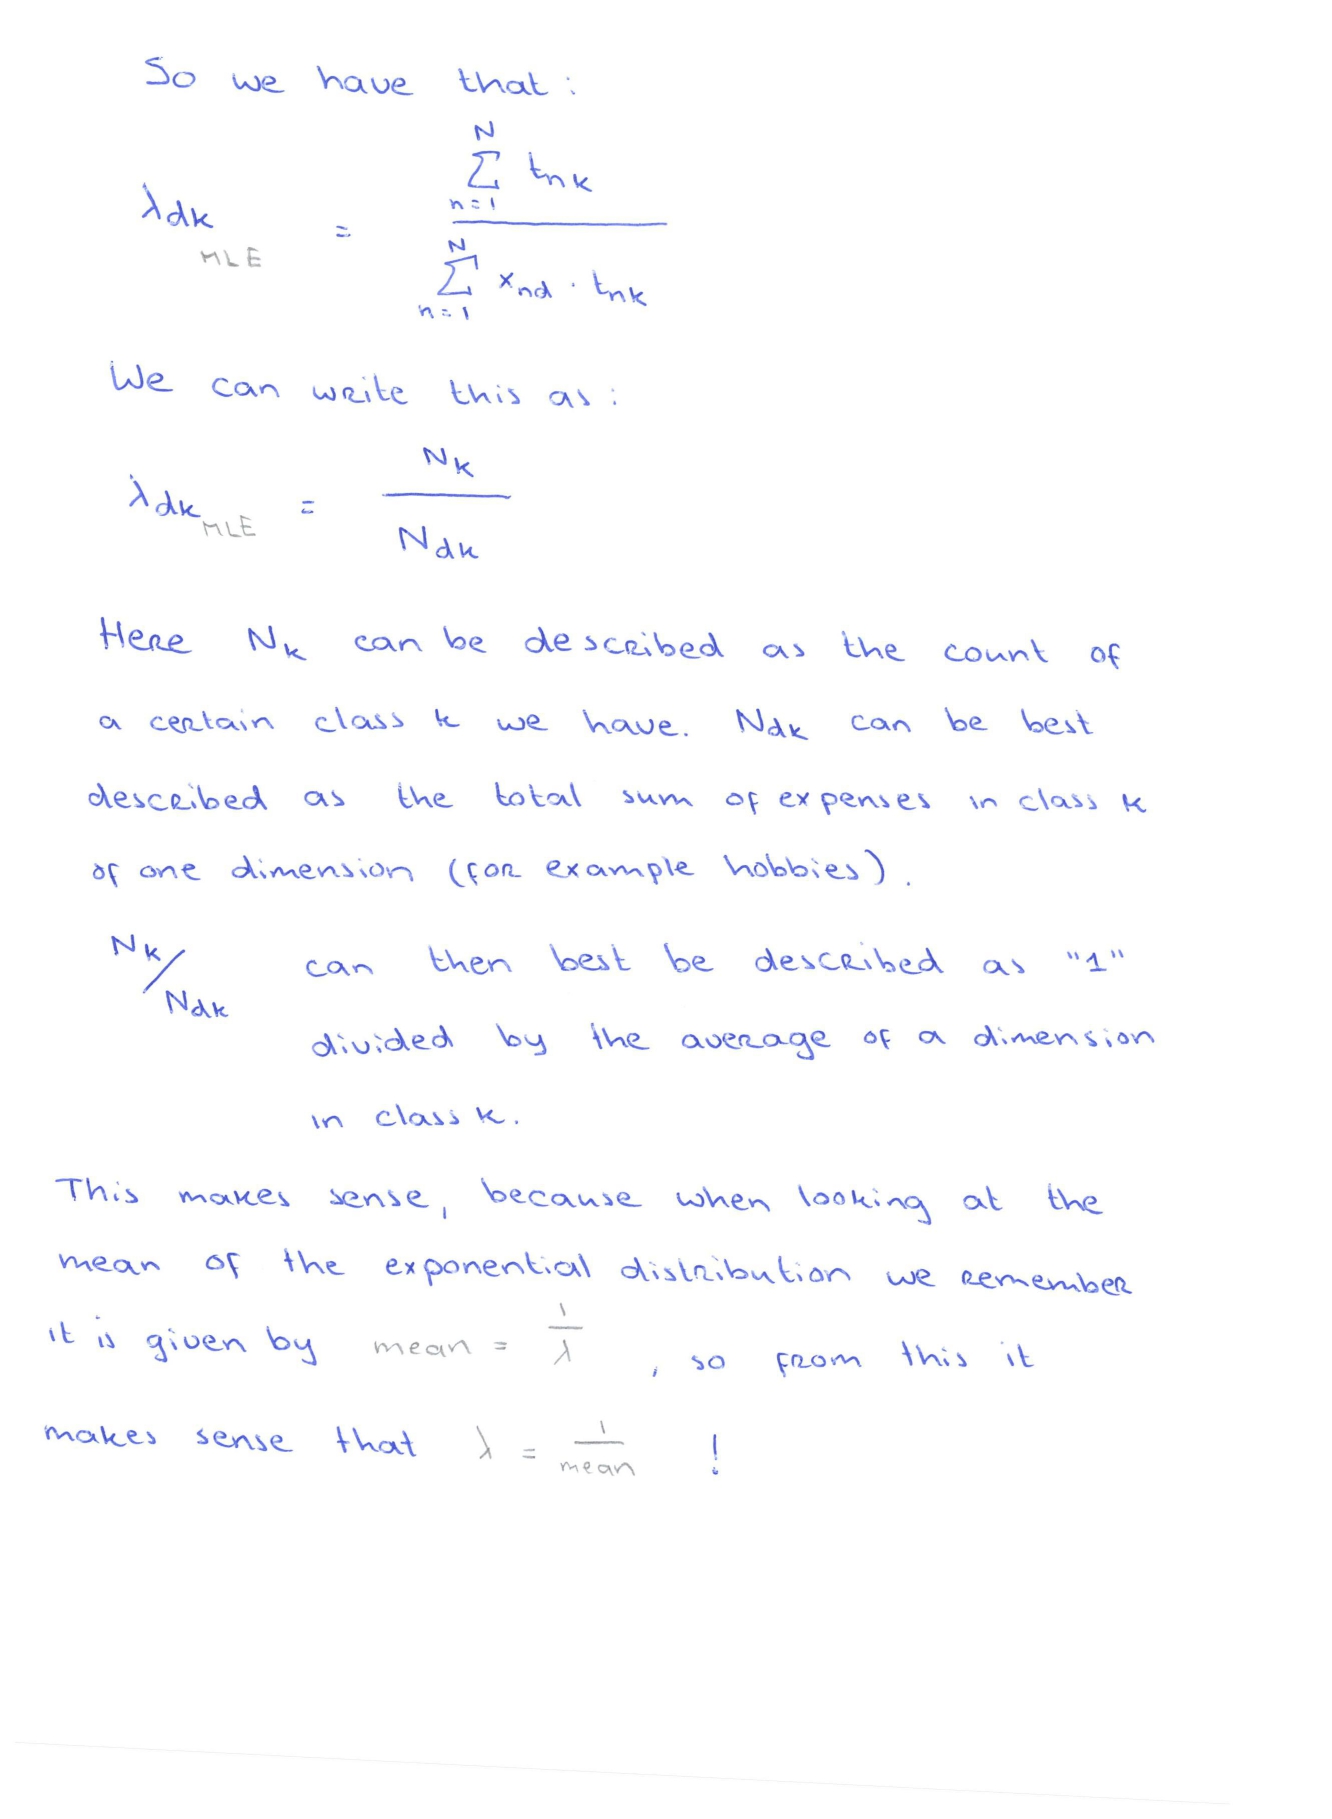 So we have that :
λdk MLE = N Σ n=1 tnk / N Σ n=1 xnd · tnk
We can write this as :
λdk MLE = Nk / Ndk
Here Nk can be described as the count of
a certain class k we have. Ndk can be best
described as the total sum of expenses in class k
of one dimension (for example hobbies).
Nk/Ndk can then best be described as "1"
divided by the average of a dimension
in class k.
This makes sense, because when looking at the
mean of the exponential distribution we remember
it is given by mean = 1/λ , so from this it
makes sense that λ = 1/mean !